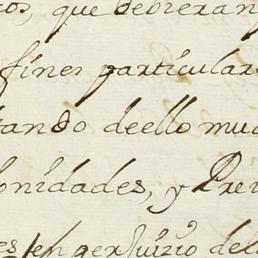 os, que debieran
fines particular
tando deello muc
onidades, y Prei
es en perjuizio del